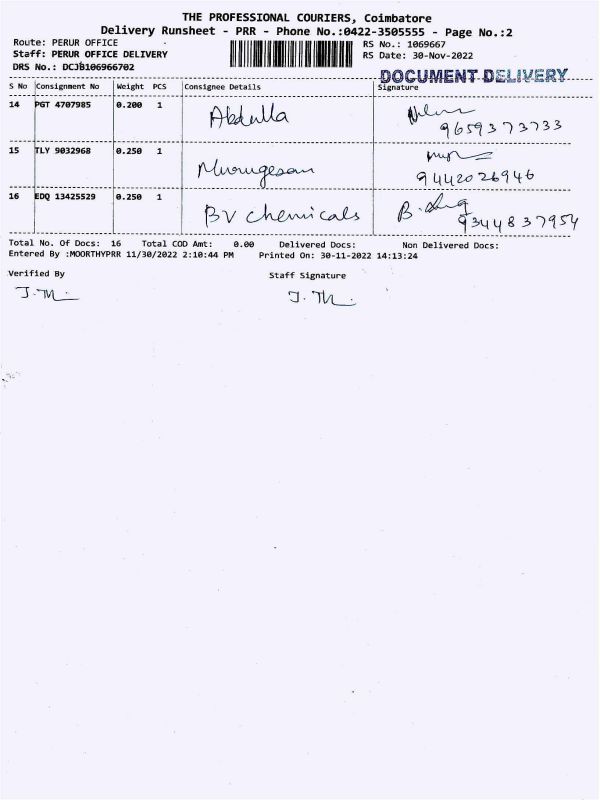 THE PROFESSIONAL COURIERS, Coimbatore
Delivery Runsheet - PRR - Phone No.:0422-3505555 - Page No.:2
Route: PERUR OFFICE RS No.: 1069667
Staff: PERUR OFFICE DELIVERY RS Date: 30-Nov-2022
DRS No.: DCJB106966702
DOCUMENT DELIVERY
S No Consignment No Weight PCS Consignee Details Signature
14 PGT 4707985 0.200 1 Abdulla
9659373733
15 TLY 9032968 0.250 1 Murugesan
9442026946
16 EDQ 13425529 0.250 1 BV chemicals B.
9344837954
Total No. Of Docs: 16 Total COD Amt: 0.00 Delivered Docs: Non Delivered Docs:
Entered By :MOORTHYPRR 11/30/2022 2:10:44 PM Printed On: 30-11-2022 14:13:24
Verified By Staff Signature